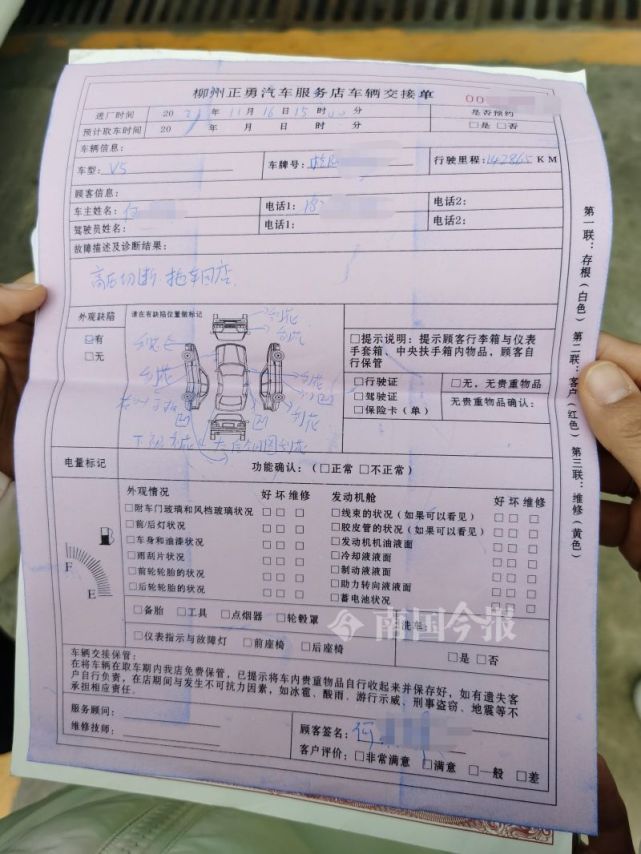 柳州正勇汽车服务店车辆交接单 00
送厂时间 2021年11月16日15时00分 是否预约
预计取车时间 20 年 月 日 时 分 □是 □否
车辆信息:
车型: V5 车牌号: 行驶里程: 142865 KM
顾客信息:
车主姓名: 何 电话1: 18 电话2:
驾驶员姓名: 电话1: 电话2:
故障描述及诊断结果:
高压切断.拖车回店.
外观缺陷
有
□无
请在有缺陷位置做标记
□提示说明:提示顾客行李箱与仪表
手套箱、中央扶手箱内物品,顾客自
行保管
□行驶证
□驾驶证
□保险卡(单)
□无,无贵重物品
无贵重物品确认:
电量标记
F
E
功能确认:(□正常 □不正常)
外观情况 好 坏 维修
□附车门玻璃和风档玻璃状况 □ □ □
□前/后灯状况 □ □ □
□车身和油漆状况 □ □ □
□雨刮片状况 □ □ □
□前轮轮胎的状况 □ □ □
□后轮轮胎的状况 □ □ □
发动机舱 好 坏 维修
□线束的状况(如果可以看见) □ □ □
□胶皮管的状况(如果可以看见) □ □ □
□发动机机油液面 □ □ □
□冷却液液面 □ □ □
□制动液液面 □ □ □
□助力转向液液面 □ □ □
□蓄电池状况 □ □ □
□备胎 □工具 □点烟器 □轮毂罩
□仪表指示与故障灯 □前座椅 □后座椅
洗车:
□是 □否
南国今报
车辆交接保管:
在将车辆在取车期内我店免费保管,已提示将车内贵重物品自行收起来并保存好,如有遗失客
户自行负责,在店期间与发生不可抗力因素,如冰雹、酸雨、游行示威、刑事盗窃、地震等不
承担相应责任。
服务顾问:
维修技师:
顾客签名: 何
客户评价:□非常满意 □满意 □一般 □差
第一联:存根(白色) 第二联:客户(红色) 第三联:维修(黄色)